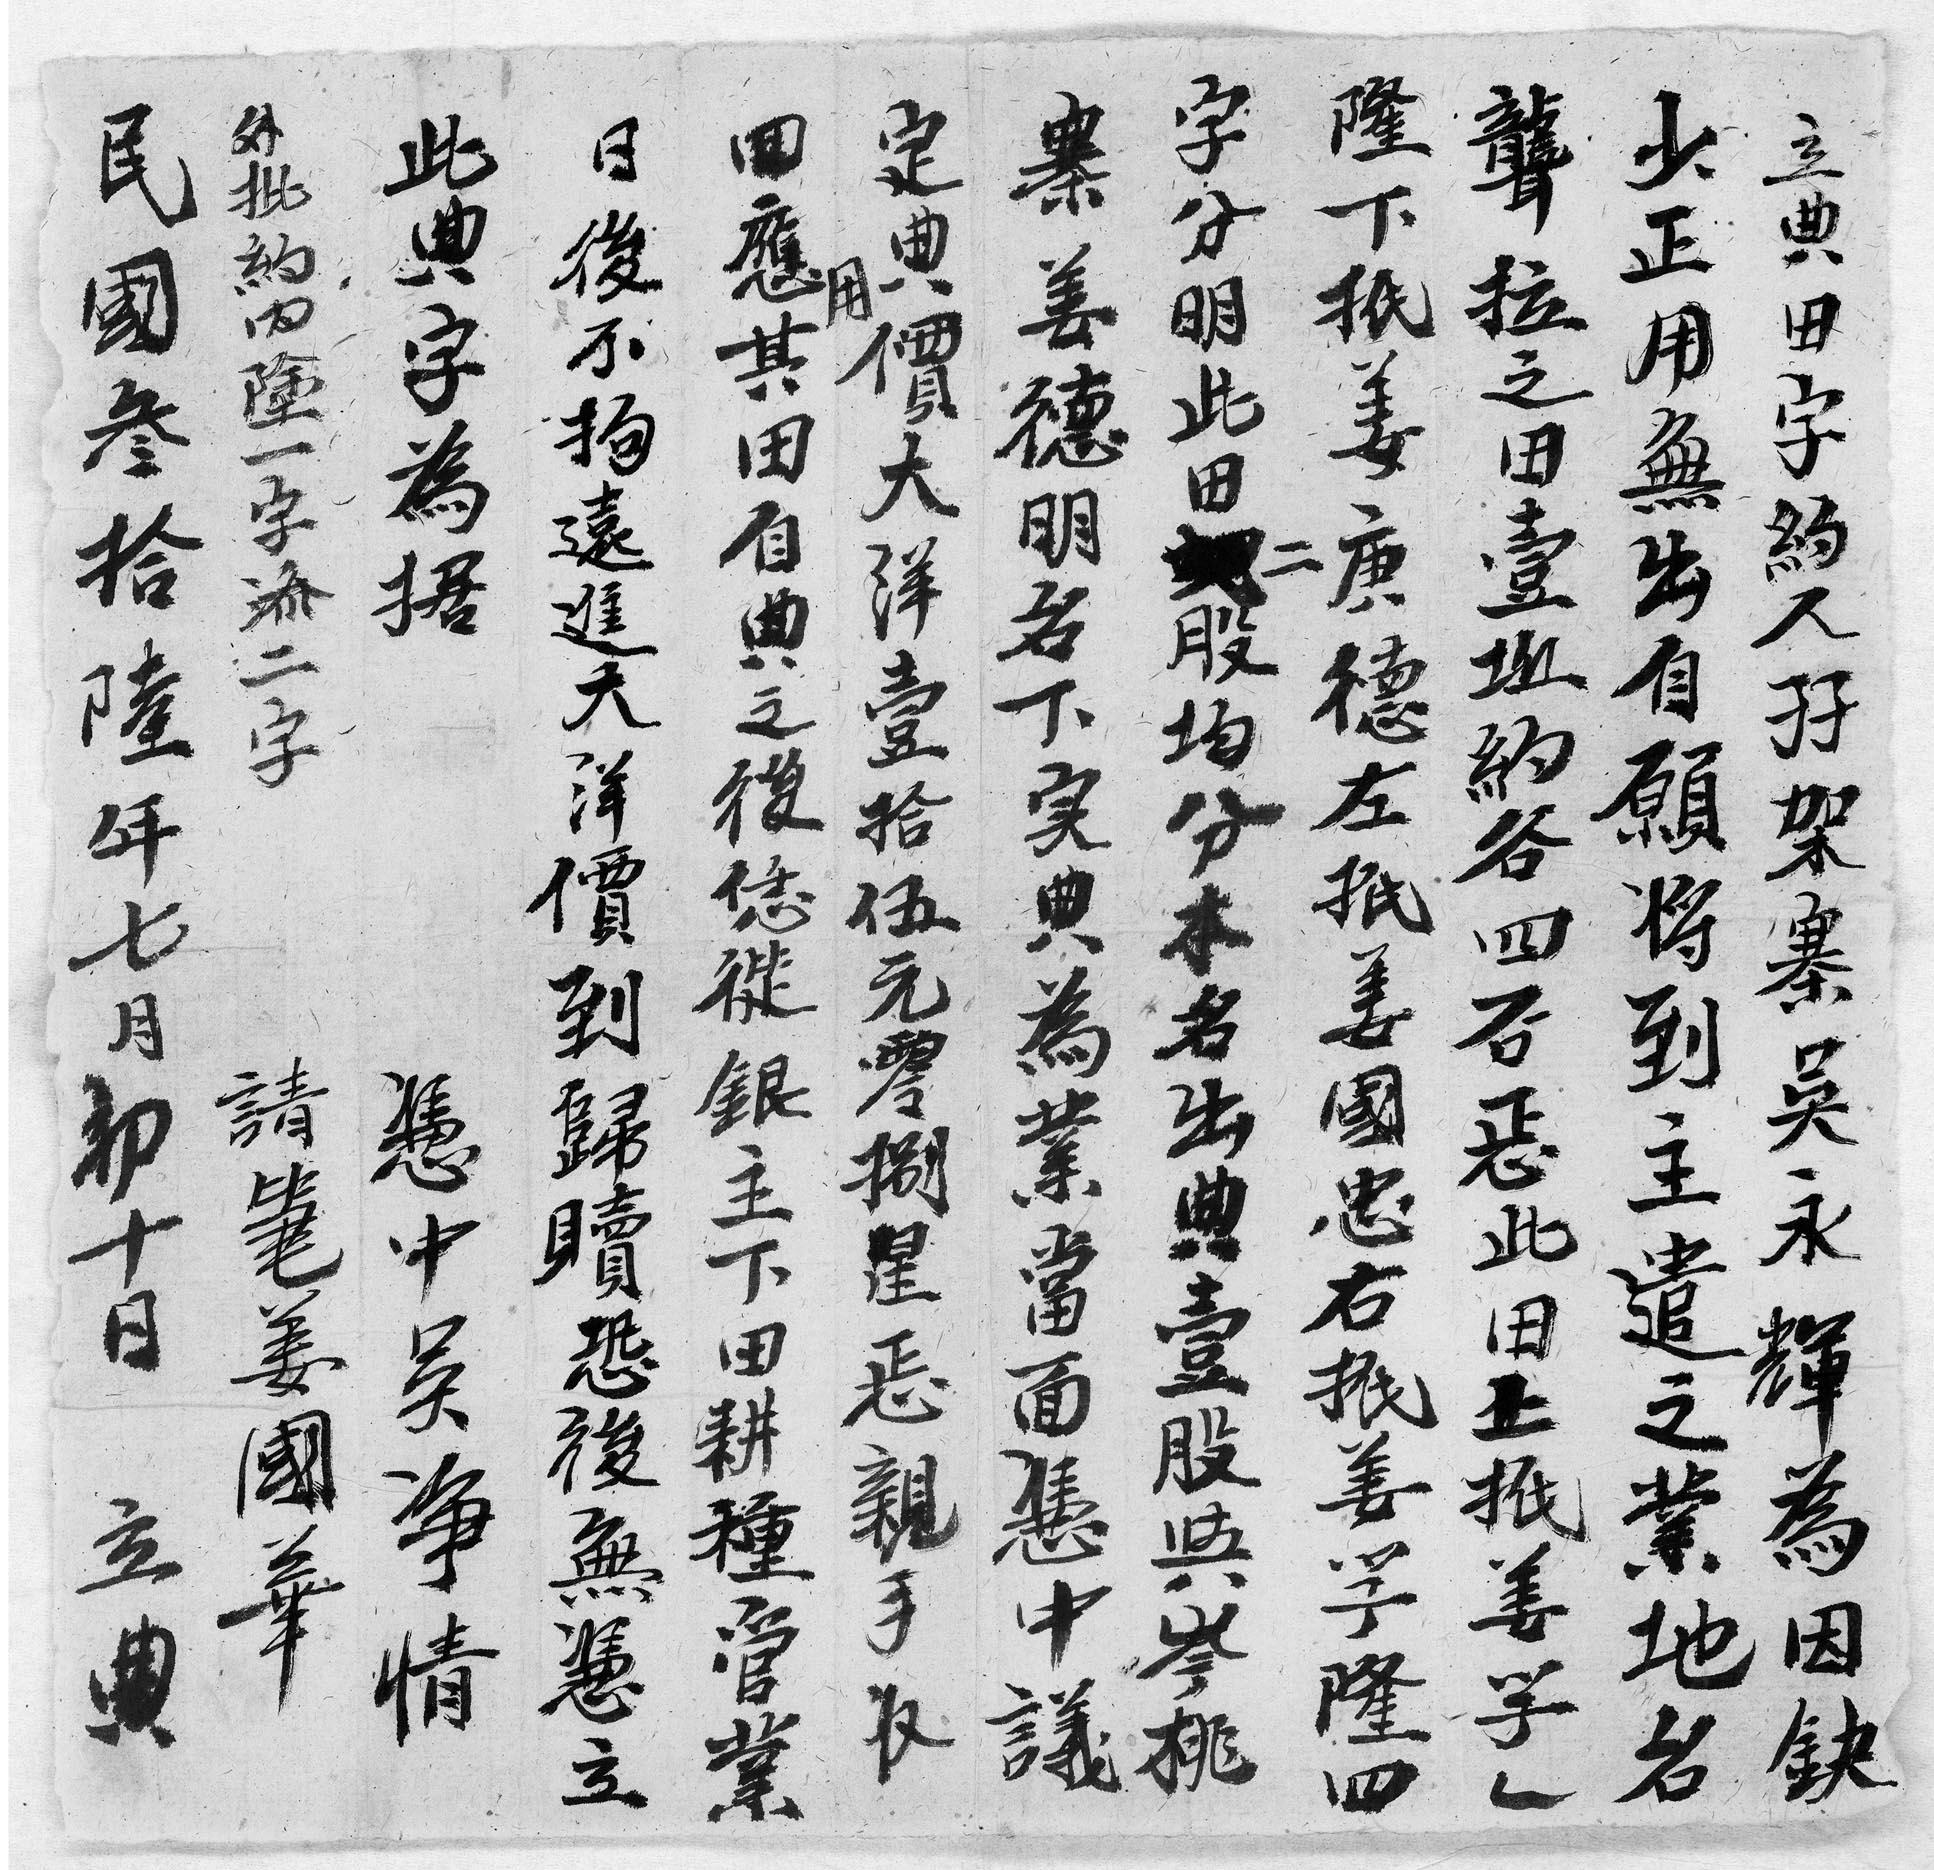 立典田字約人孖架寨吳永輝為因缺
少正用無出自願將到主遣之業地名
聾拉之田壹坵約谷四石恁此田上抵姜学乚
隆下抵姜庚德左抵姜國忠右抵姜学隆四
字分明此田二股均分本名出典壹股與岑桃
寨姜德明名下実典為業當面憑中議
定典價大洋壹拾伍元零捌星恁親手收
回應用其田自典之後恁從銀主下田耕種管業
日後不拘遠進大洋價到歸贖恐後無憑立
此典字為据
憑中吳净情
外批約内塗一字添二字
請筆姜國華
民國叁拾陸年七月初十日 立典